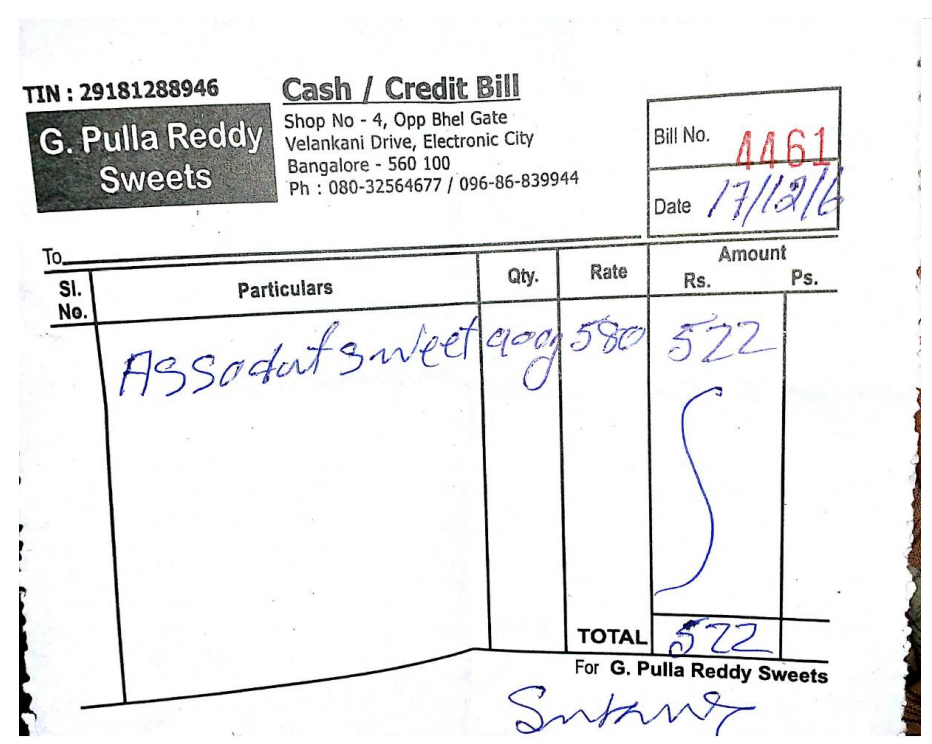 TIN : 29181288946
Cash / Credit Bill
G. Pulla Reddy
Sweets
Shop No - 4, Opp Bhel Gate
Velankani Drive, Electronic City
Bangalore - 560 100
Ph : 080-32564677 / 096-86-839944
Bill No. 4461
Date 17/12/16
To
Sl. No. Particulars Qty. Rate Amount Rs. Ps.
sweet 900g 580 522
TOTAL 522
For G. Pulla Reddy Sweets